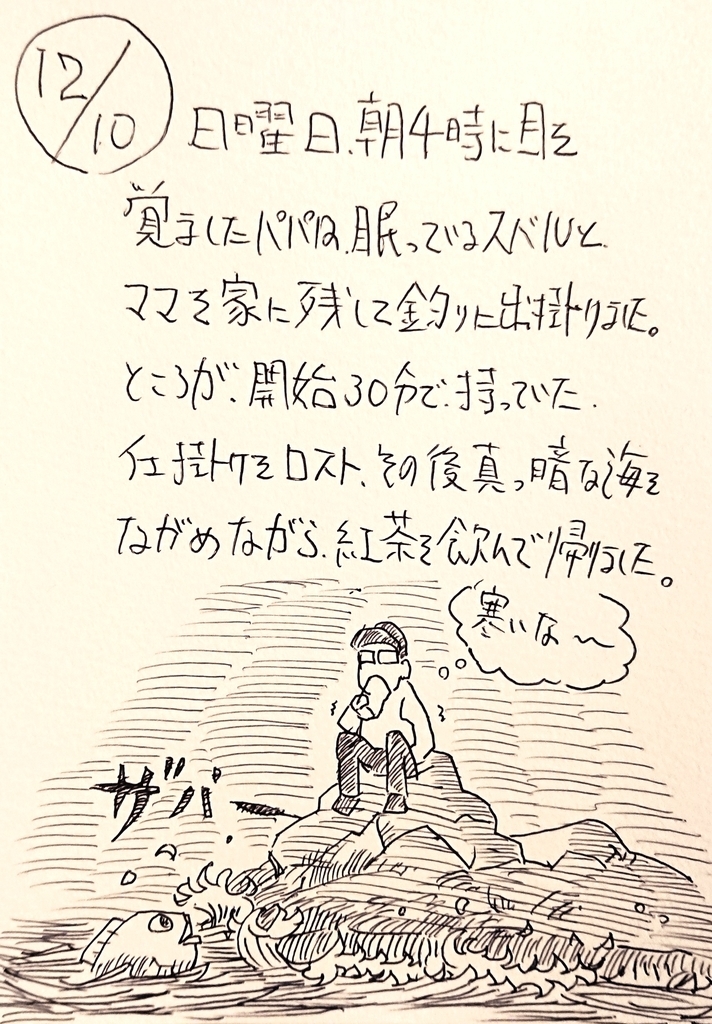 12/10
日曜日、朝4時に目を
覚ましたパパは、眠っているスバルと、
ママを家に残して釣りに出掛けました。
ところが、開始30分で、持っていた、
仕掛けをロスト、その後真っ暗な海を
ながめながら、紅茶を飲んで帰りました。
寒いな〜
ザバー